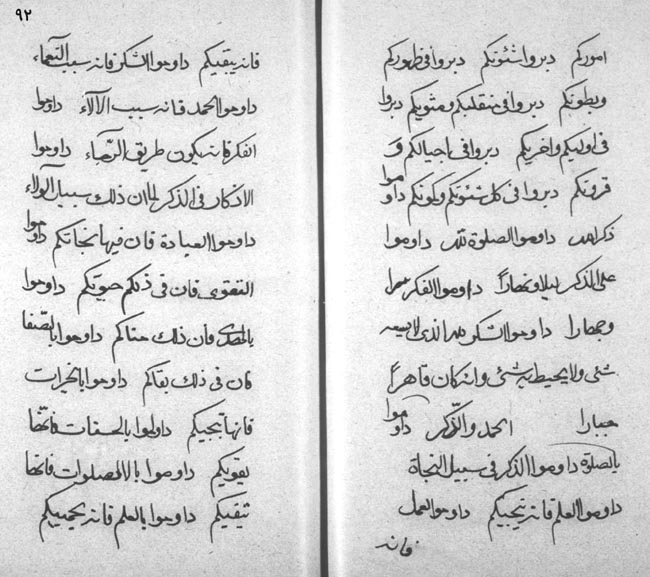 ٩٢
اموركم دبروا شئونكم دبروا فى ظهوركم
وبطونكم دبروا فى منقلبكم ومثويكم دبروا
فى اوليكم واخريكم دبروا فى اجيالكم و
قرونكم دبروا فى كل شئونكم وكونكم داوموا
ذكر الله داوموا الصلوة لله داوموا
على الذكر ليلا ونهارا داوموا الفكر سرا
وجهارا داوموا الشكر لله الذى لا يسعه
شئ ولا يحيط به شئ وان كان قاهرا
جبارا الحمد والذكر داوموا
بالصلوة داوموا الذكر فى سبيل النجاة
داوموا العلم فانه ينجيكم داوموا العمل
فانه
فانه يبقيكم داوموا الشكر فانه سبب النعماء
داوموا الحمد فانه سبب الآلاء داوموا
الفكر فانه يكون طريق داوموا
الاذكار فى الذكر لما ان ذلك سبيل الولاء
داوموا العبادة فان فيها نجاتكم داوموا
التقوى فان فى ذلكم حيوتكم داوموا
بالهدى وان ذلك داوموا بالصفا
فان فى ذلك بقاكم داوموا بالخيرات
فانها تنجيكم داوموا بالحسنات فانها
تقويكم داوموا بالصلوات فانها
تبقيكم داوموا بالعلم فانه يحييكم